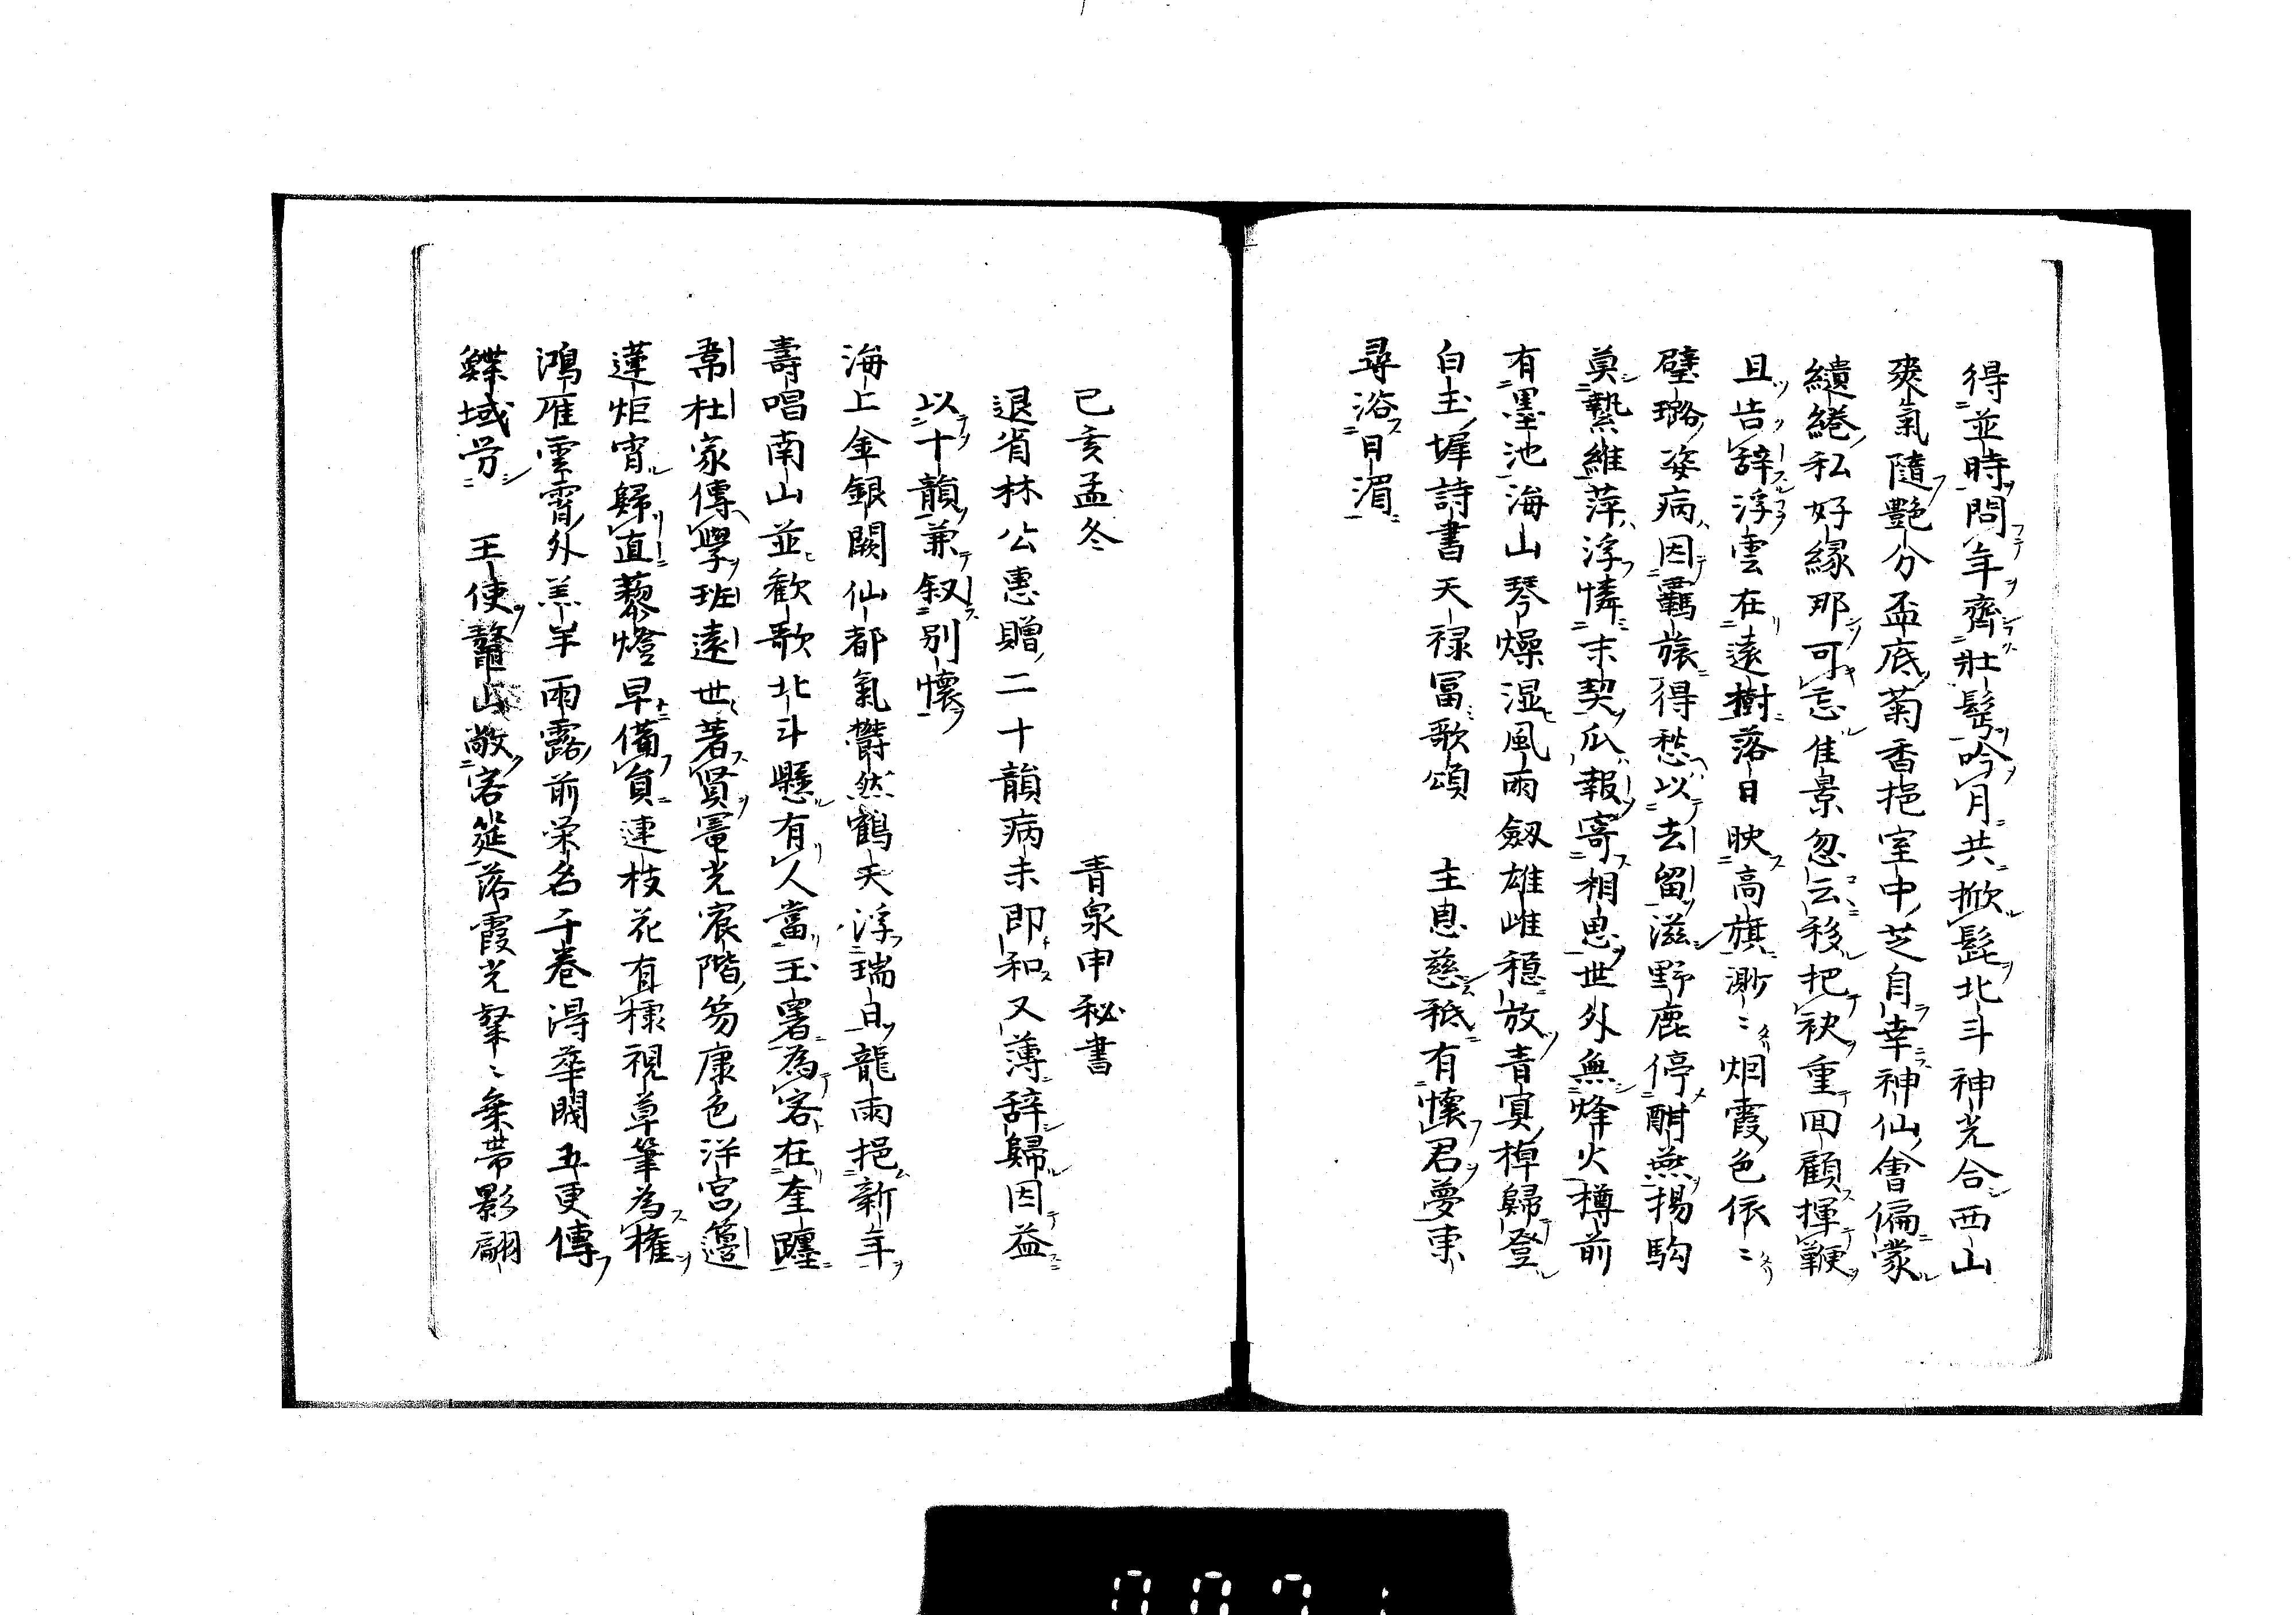 得並時問年齊壯髩吟月共掀髭北斗神光合西山
爽氣隨艷分盃底菊香挹室中芝自幸神仙會偏蒙
繾綣私好緣那可忘佳景忽云移把袂重回顧揮鞭
且告辞浮雲在遠樹落日映高旗渺〻烟霞色依〻
璧璐姿病因羈旅得愁以去留滋野鹿停酣燕揚駒
莫縶維萍浮憐末契瓜報寄相思世外無烽火樽前
有墨池海山琴燥湿風雨劔雄雌穏放青冥棹歸登
白玉墀詩書天禄冨歌頌　主恩慈秪有懷君夢東
尋浴日湄
己亥孟冬　青泉申秘書
退省林公惠贈二十韻病未即和又薄辞歸因益
以十韻兼叙別懷
海上金銀闕仙都氣欝然鶴天浮瑞日龍雨挹新年
壽唱南山並歡歌北斗懸有人當玉署為客在奎躔
韋杜家傳學班遠世著賢冨光宸階笏康色泮宮籩
蓮炬宵歸直藜燈早備員連枝花有棣視草筆為権
鴻雁雲霄外羔羊雨露前栄名千巻得華閥五更傳
鰈域労　王使鼇山敞客筵落霞光粲〻乗帯影翩